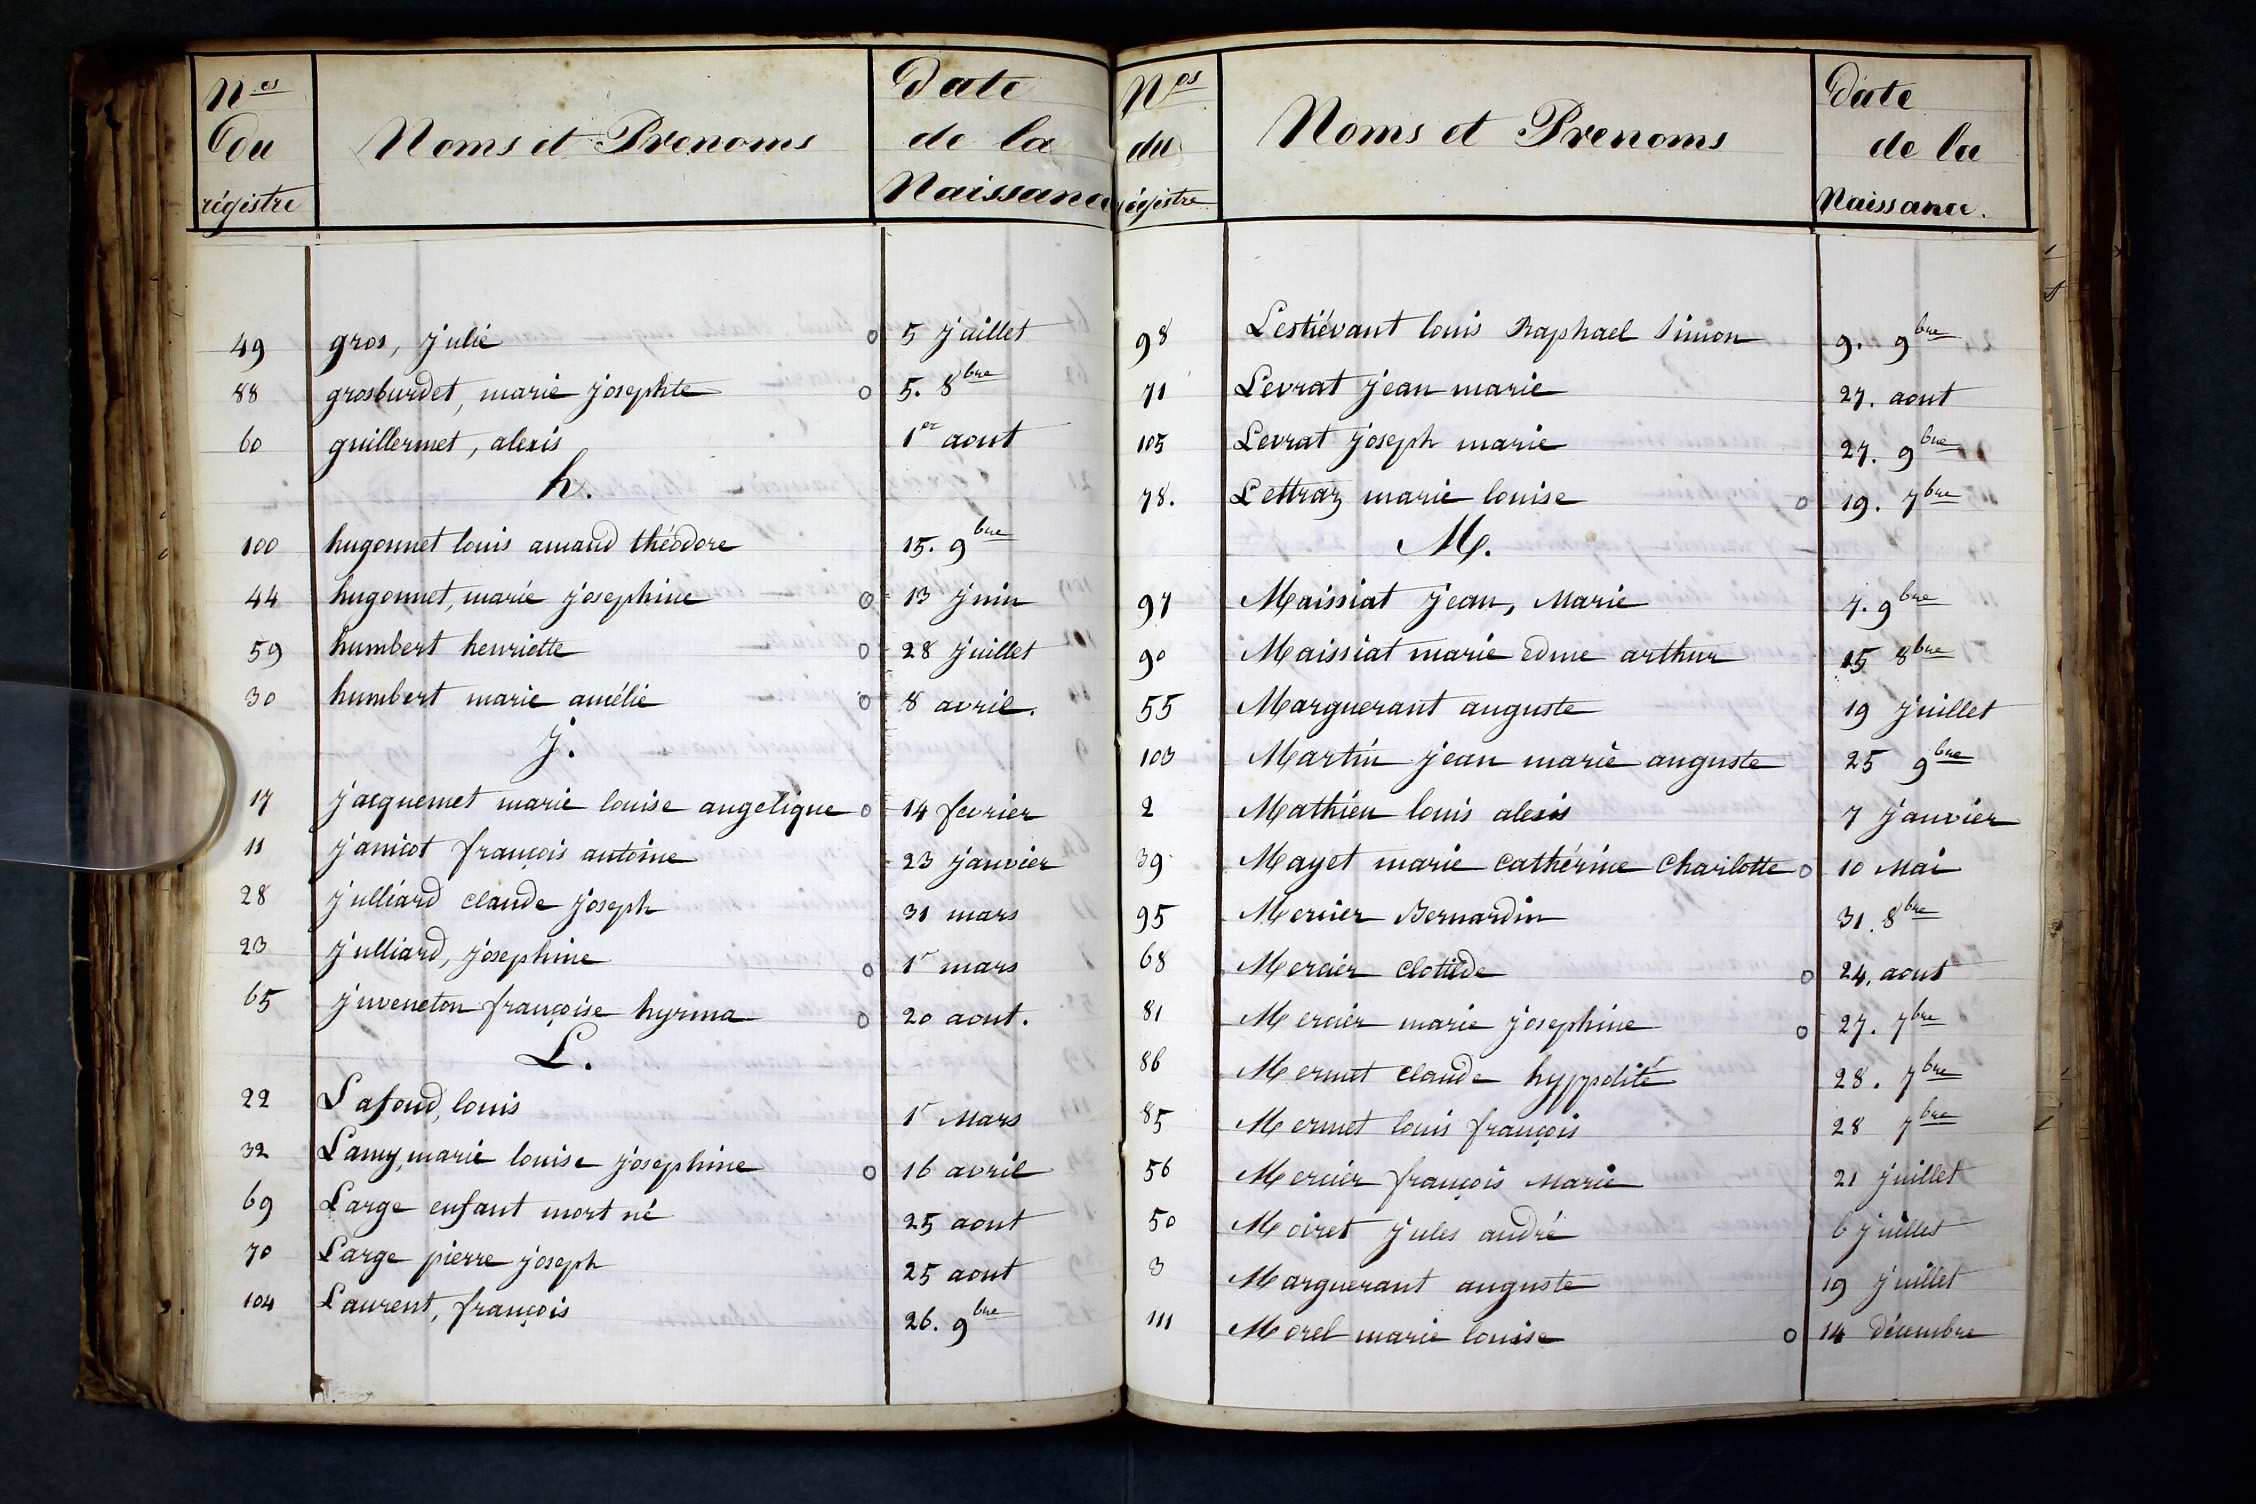 Nos
du
régistre
Noms et Prenoms
Date
de la
Naissance
49 gros, julie o 5 juillet
88 grosburdet, marie josephte o 5. 8bre
60 guillermet, alexis 1er aout
h.
100 hugonnet louis amand théodore 15. 9bre
44 hugonnet, marie josephine o 13 juin
59 humbert henriette o 28 juillet
30 humbert marie amélie o 8 avril.
j.
17 jacquemet marie louise angelique o 14 fevrier
11 janicot françois antoine 23 janvier
28 julliard claude joseph 31 mars
23 julliard, josephine o 1r mars
65 juveneton françoise hyrma o 20 aout.
L.
22 Lafond, louis 1r Mars
32 Lamy, marie louise josephine o 16 avril
69 Large enfant mort né 25 aout
70 Large pierre joseph 25 aout
104 Laurent, françois 26. 9bre
Nos
du
régistre
Noms et Prenoms
Date
de la
Naissance.
98 Lestiévant louis Raphael Simon 9. 9bre
71 Levrat jean marie 27. aout
105 Levrat joseph marie 27. 9bre
78. Lettraz marie louise o 19. 7bre
M.
97 Maissiat jean, Marie 7. 9bre
90 Maissiat marie edme arthur 15 8bre
55 Marguerant auguste 19 juillet
103 Martin jean marie auguste 25 9bre
2 Mathieu louis alexis 7 janvier
39 Mayet marie cathérine Charlotte o 10 Mai
95 Mercier Bernardin 31. 8bre
68 Mercier clotilde o 24. aout
81 Mercier marie josephine o 27. 7bre
86 Mermet claude hyppolité 28. 7bre
85 Mermet louis françois 28 7bre
56 Mercier françois Marie 21 juillet
50 Moiret jules andré 6 juillet
3 Marguerant auguste 19 juillet
111 Morel marie louise o 14 décembre